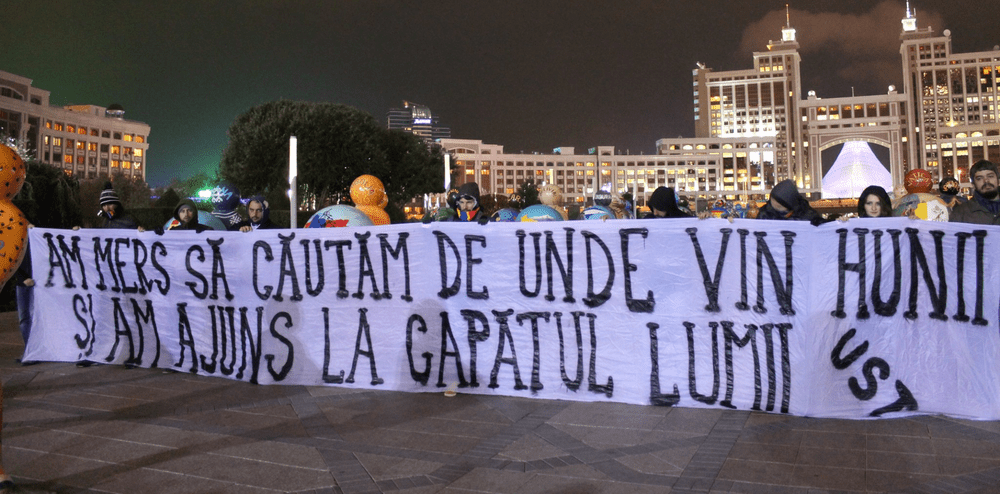 AM MERS SĂ CĂUTĂM DE UNDE VIN HUNII
ȘI AM AJUNS LA CAPĂTUL LUMII
UST